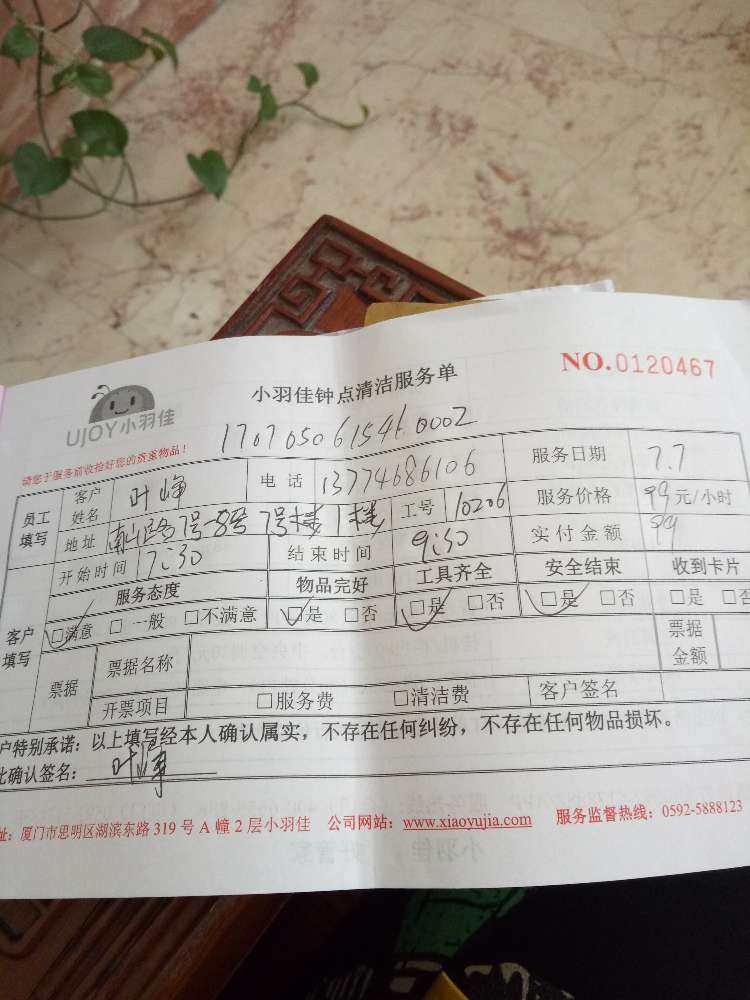 UJOY小羽佳
小羽佳钟点清洁服务单
NO.0120467
请您于服务前收拾好您的贵重物品!
170705061546 0002
员工填写 客户姓名 叶峥 电话 13774686106 服务日期 7.7
地址 南山路7号-8号7号楼1楼 工号 10206 服务价格 99元/小时
开始时间 7:30 结束时间 9:30 实付金额 99
客户填写 服务态度 物品完好 工具齐全 安全结束 收到卡片
□满意 □一般 □不满意 □是 □否 □是 □否 □是 □否 □是 □否
票据 票据名称 票据金额
开票项目 □服务费 □清洁费 客户签名
户特别承诺：以上填写经本人确认属实，不存在任何纠纷，不存在任何物品损坏。
此确认签名： 叶峥
址：厦门市思明区湖滨东路 319 号 A 幢 2 层小羽佳 公司网站：www.xiaoyujia.com 服务监督热线：0592-5888123